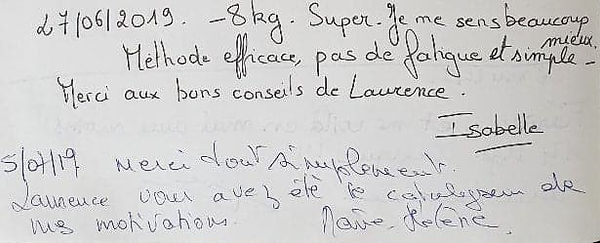 27/06/2019. -8kg. Super. Je me sens beaucoup
mieux.
Méthode efficace, pas de fatigue et simple -
Merci aux bons conseils de Laurence.
Isabelle
5/07/19 Merci tout simplement.
Laurence vous avez été le catalyseur de
mes motivations. Marie-Hélène